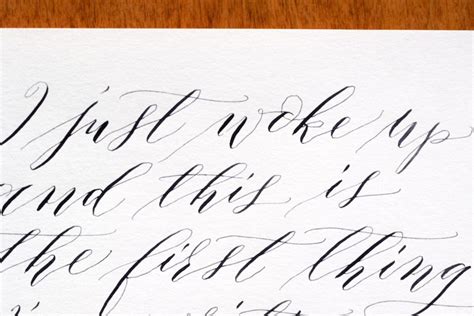 I just woke up
and this is
the first thing